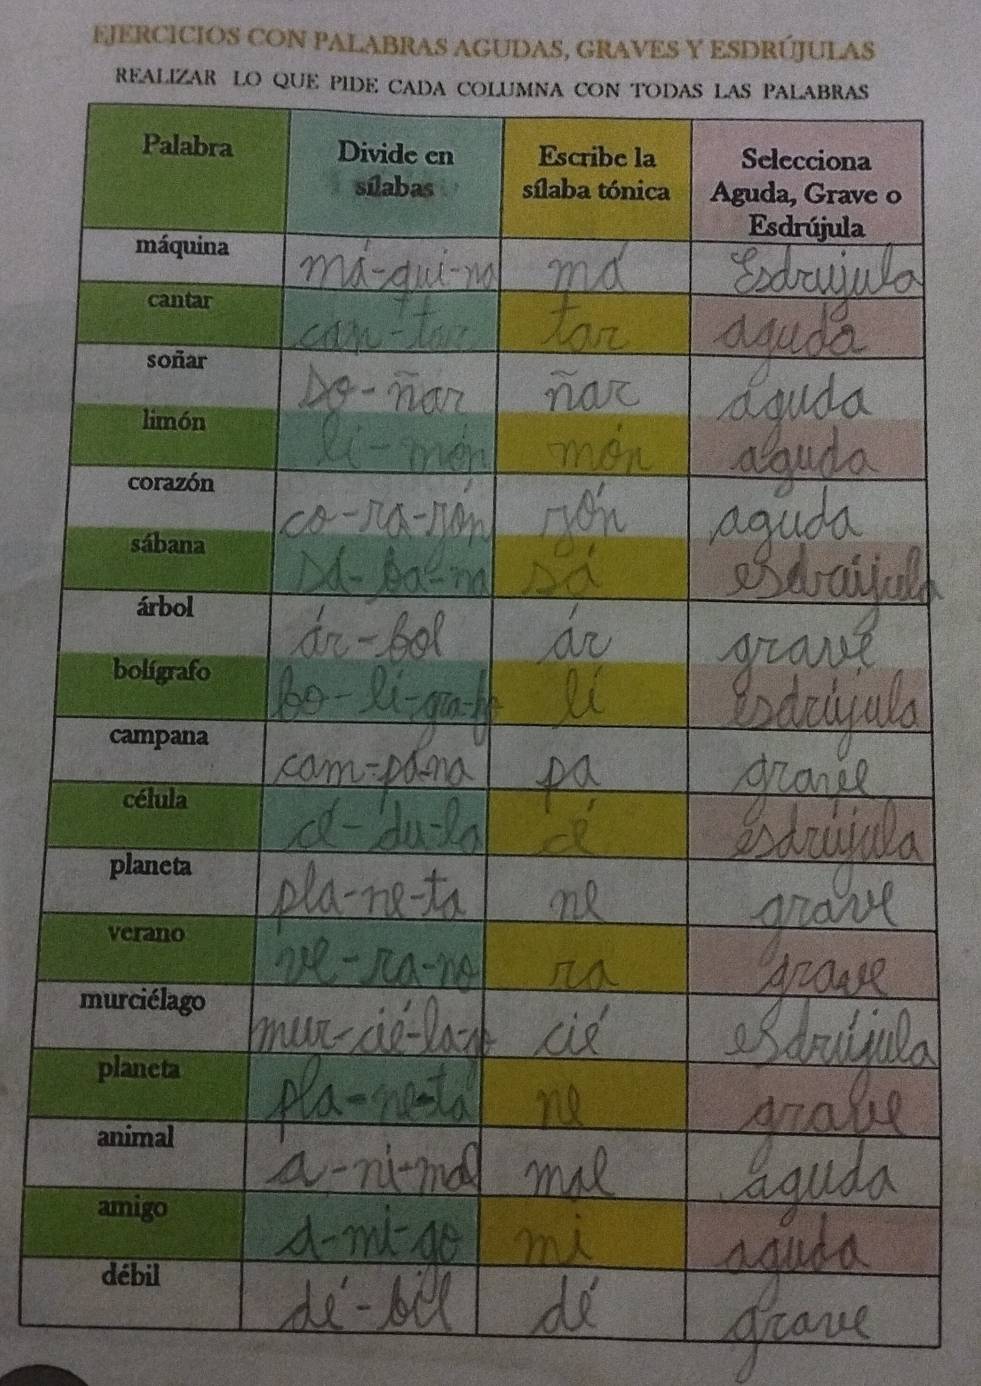 EJERCICIOS CON PALABRAS AGUDAS, GRAVES Y ESDRÚJULAS
REALIZAR LO QUE PIDE CADA COLUMNA CON TODAS LAS PALABRAS
Palabra Divide en sílabas Escribe la sílaba tónica Selecciona Aguda, Grave o Esdrújula
máquina má-qui-na má Esdrújula
cantar can-tar tar aguda
soñar so-ñar ñar aguda
limón li-món món aguda
corazón co-ra-zón zón aguda
sábana sá-ba-na sá esdrújula
árbol ár-bol ár grave
bolígrafo bo-lí-gra-fo lí esdrújula
campana cam-pa-na pa grave
célula cé-du-la cé esdrújula
planeta pla-ne-ta ne grave
verano ve-ra-no ra grave
murciélago mur-cié-la-go cié esdrújula
planeta pla-ne-ta ne grave
animal a-ni-mal mal aguda
amigo a-mi-go mi aguda
débil dé-bil dé grave